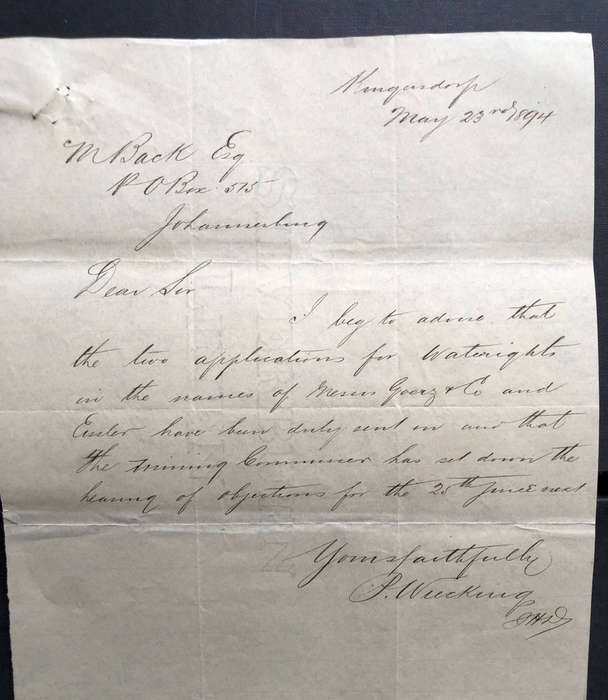 Krugersdorp
May 23rd 1894
M Back Esq
P O Box 515
Johannesburg
Dear Sir
I beg to advise that
the two applications for Waterrights
in the names of Messrs Goerz & Co and
Eissler have been duly sent in and that
the Mining Commissioner has set down the
hearing of objections for the 25th June next
Yours faithfully